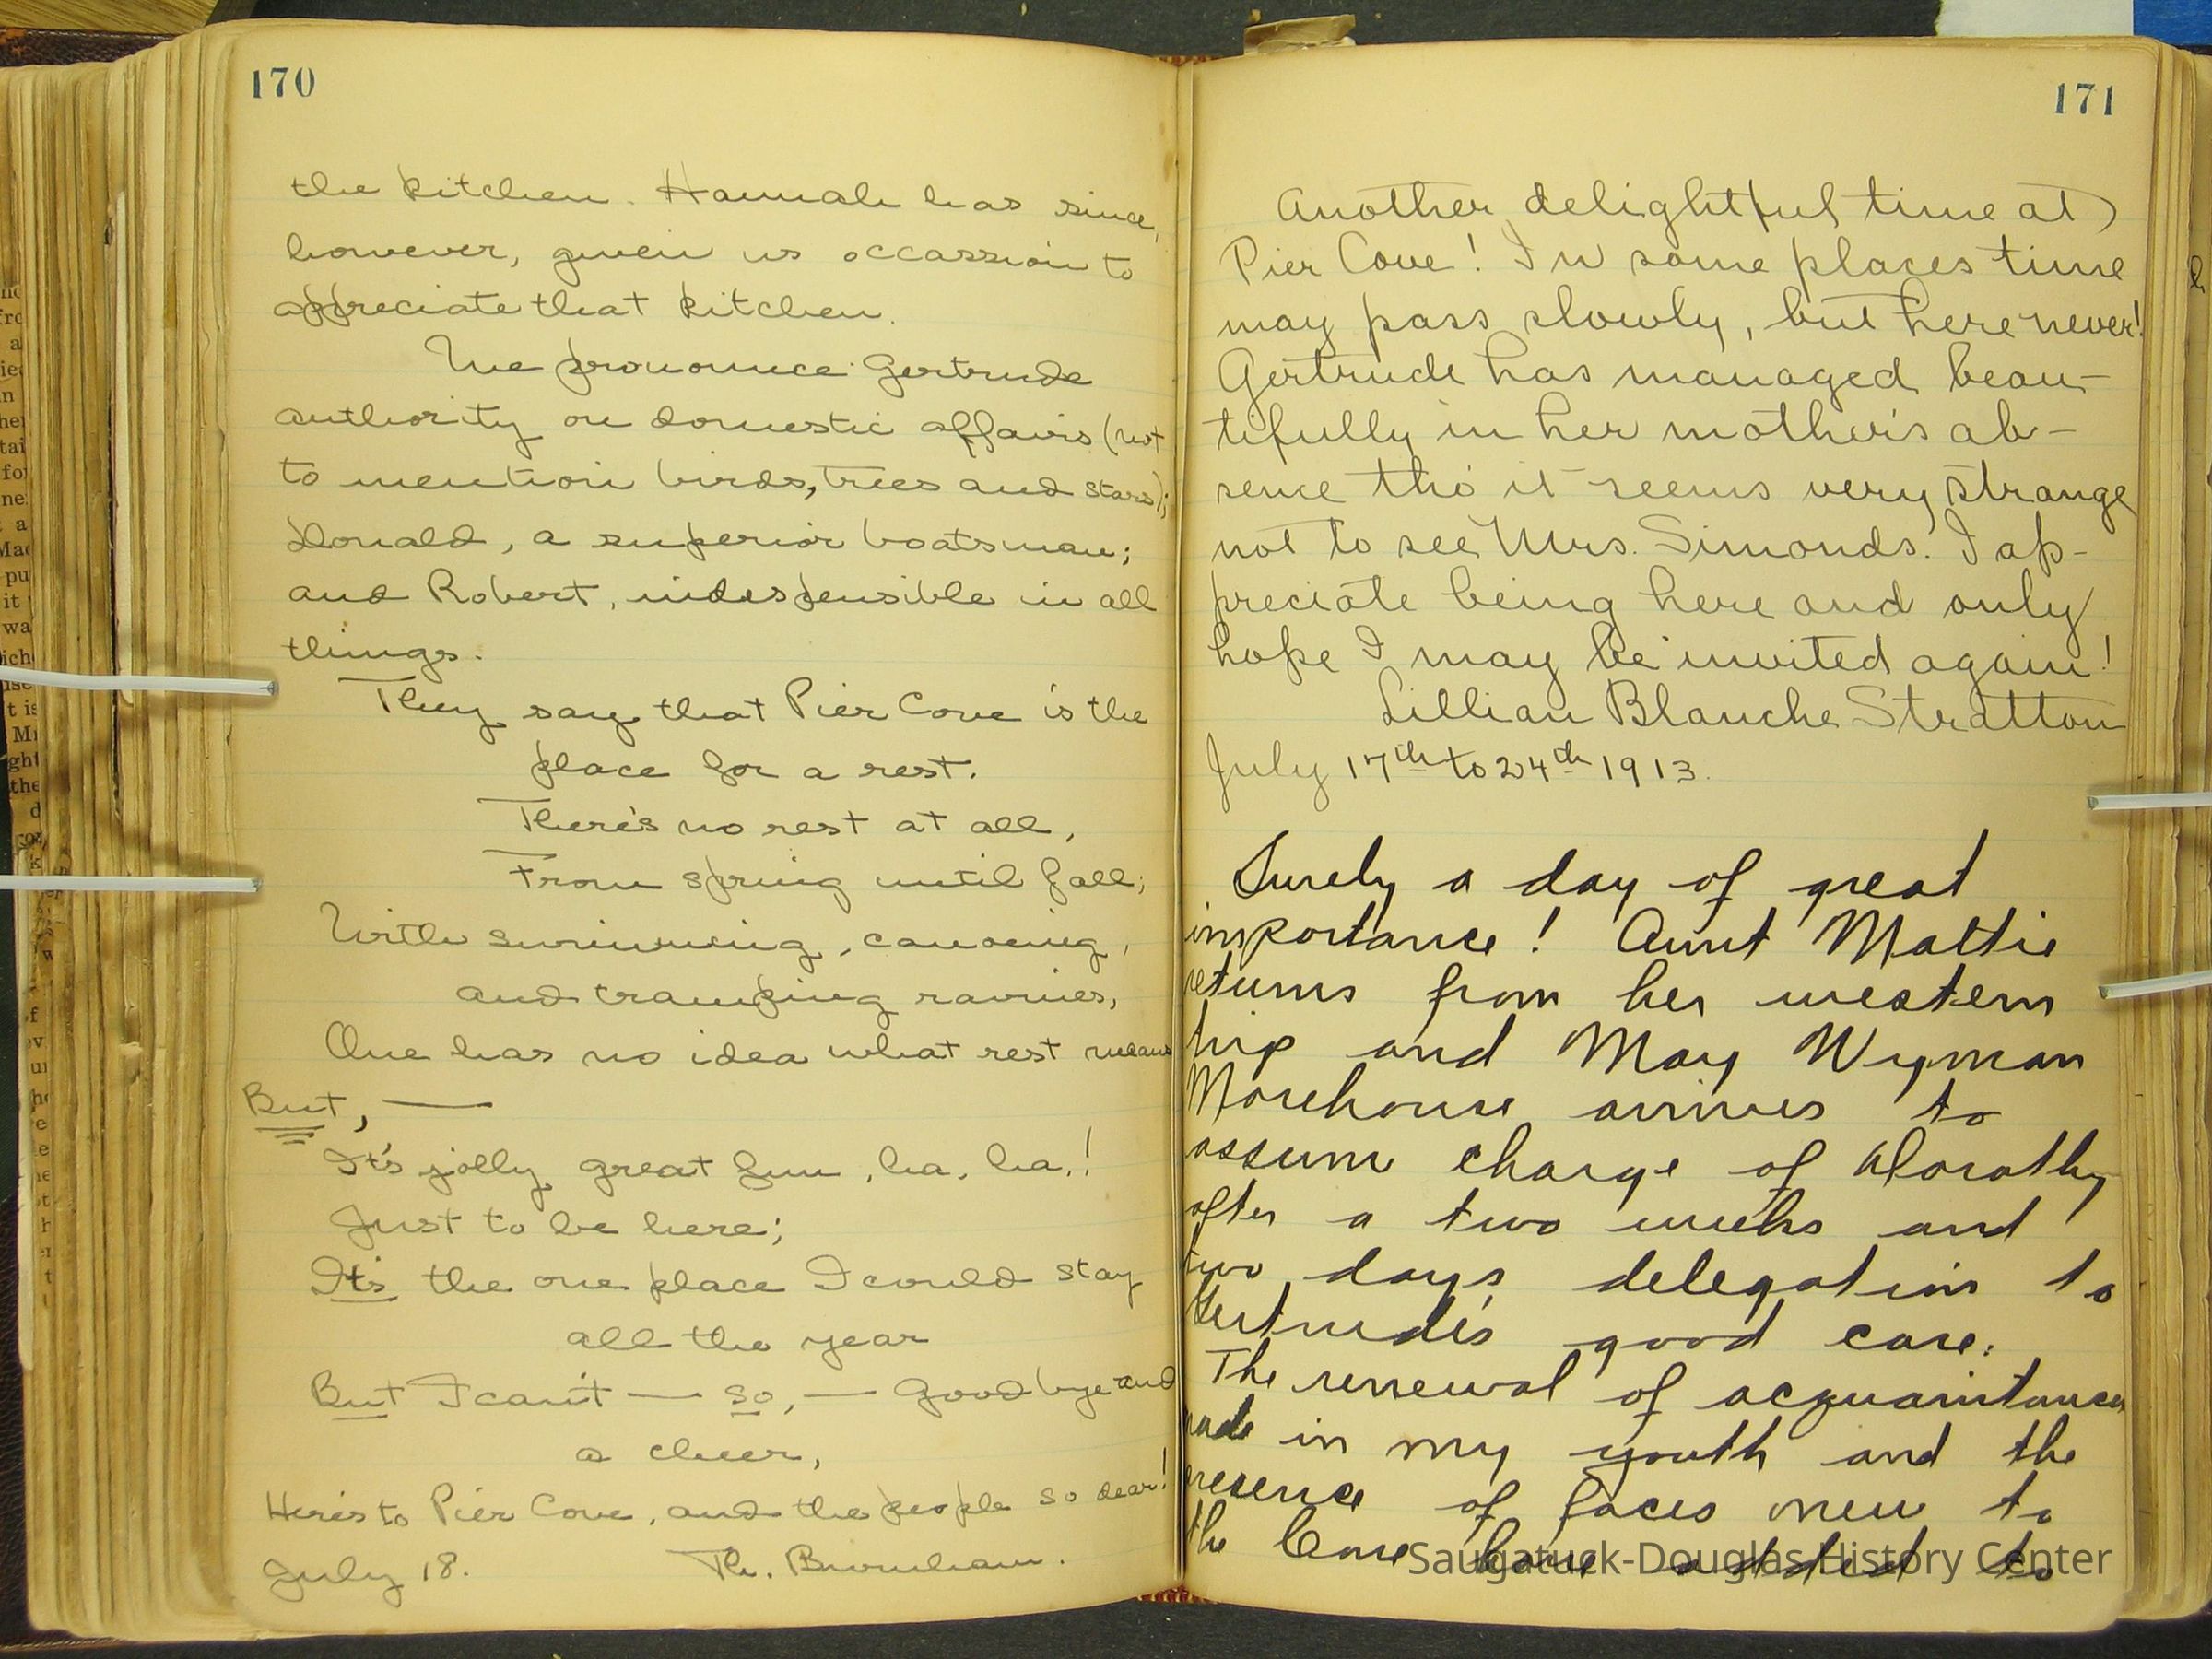 170
the kitchen. Hannah has since,
however, given us occassion to
appreciate that kitchen.
We pronounce Gertrude
authority on domestic affairs (not
to mention birds, trees and stars);
Donald, a superior boatsman;
and Robert, indespensible in all
things.
They say that Pier Cove is the
place for a rest.
There's no rest at all,
From spring until fall;
With swimming, canoeing,
and tramping ravines,
One has no idea what rest means
But, —
It's jolly great fun, ha, ha,!
Just to be here;
It's the one place I could stay
all the year
But I can't — so, — Good bye and
a cheer,
Here's to Pier Cove, and the people so dear!
July 18. Th. Burnham.
171
Another delightful time at
Pier Cove! In some places time
may pass slowly, but here never!
Gertrude has managed beau-
tifully in her mother's ab-
sence tho' it seems very strange
not to see Mrs. Simonds. I ap-
preciate being here and only
hope I may be invited again!
Lillian Blanche Stratton
July 17th to 24th 1913.
Surely a day of great
importance! Aunt Mattie
returns from her western
trip and May Wyman
Morehouse arrives to
assum charge of Dorothy
after a two weeks and
two days delegation to
Gertrude's good care.
The renewal of acquaintances
made in my youth and the
presence of faces new to
the Cove have added to
Saugatuck-Douglas History Center